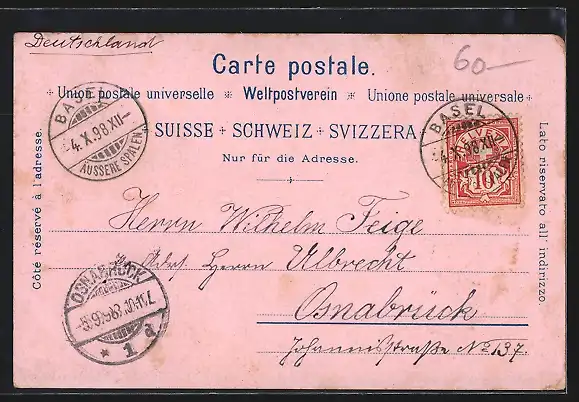 Deutschland
60—
Carte postale.
Union postale universelle * Weltpostverein * Unione postale universale
SUISSE + SCHWEIZ + SVIZZERA
Nur für die Adresse.
Côté réservé à l'adresse.
Lato riservato all indirizzo.
BASEL
4.X.98.XII—
ÄUSSERE SPALEN
BASEL
4.X.98.XII—
HELVETIA
10
Herrn Wilhelm Feige
Adr. Herrn Ulbrecht
Osnabrück
Johannisstraße No 137.
OSNABRÜCK
* 1 d